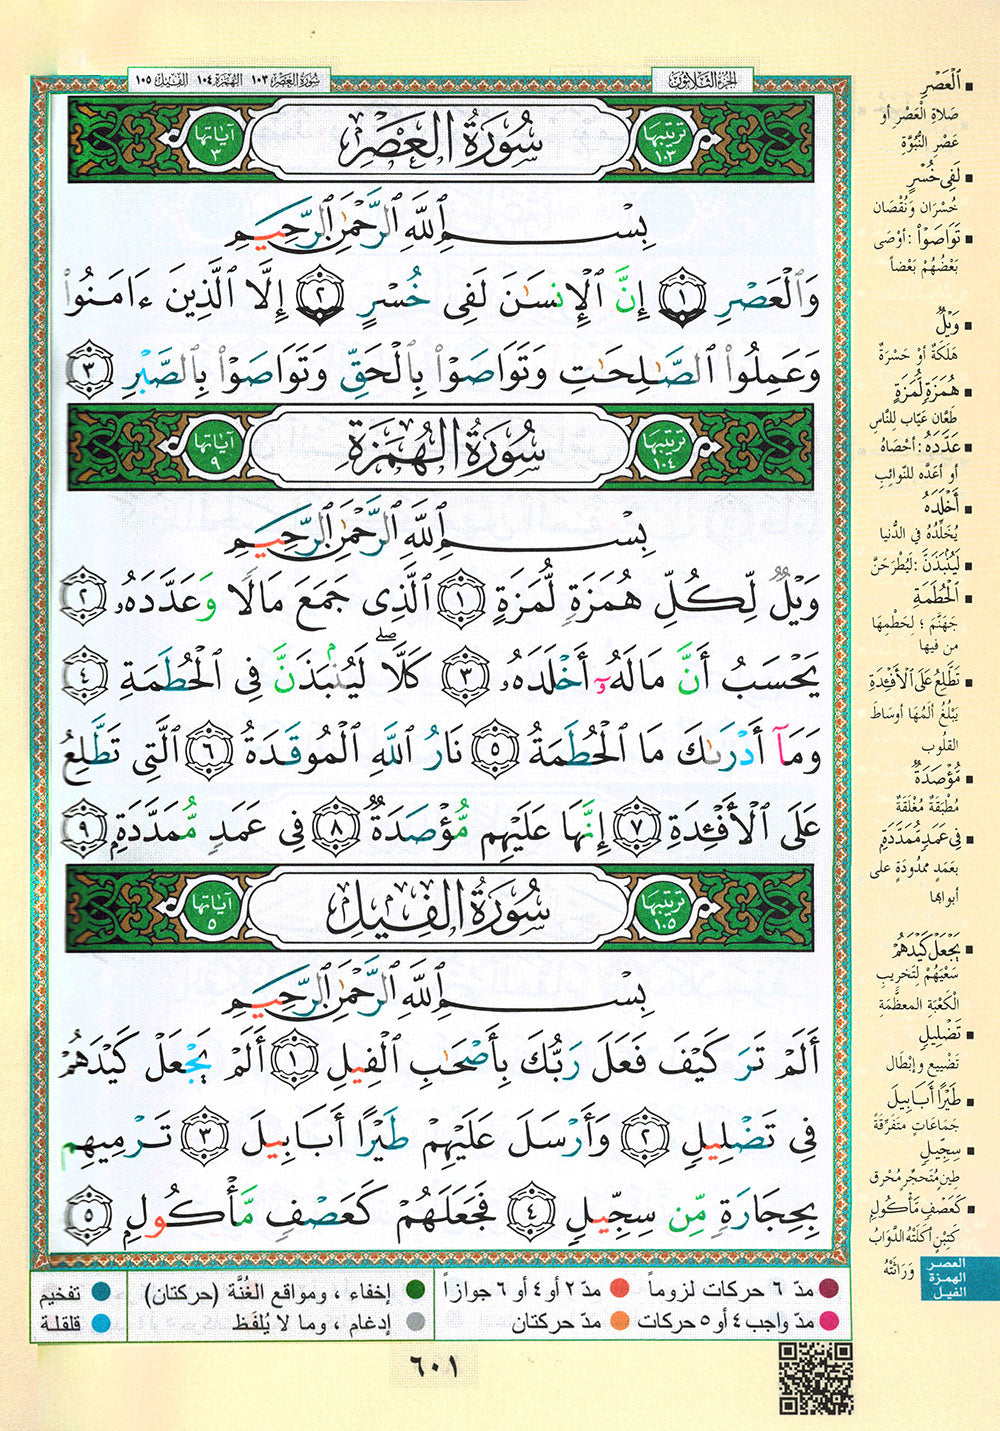 الجزء الثلاثون
سورة العصر ١٠٣ الهمزة ١٠٤ الفيل ١٠٥
ترتيبها ١٠٣ سُورَةُ العَصْرِ آياتها ٣
بِسْمِ ٱللَّهِ ٱلرَّحْمَٰنِ ٱلرَّحِيمِ
وَٱلْعَصْرِ ١ إِنَّ ٱلْإِنسَٰنَ لَفِى خُسْرٍ ٢ إِلَّا ٱلَّذِينَ ءَامَنُوا۟
وَعَمِلُوا۟ ٱلصَّٰلِحَٰتِ وَتَوَاصَوْا۟ بِٱلْحَقِّ وَتَوَاصَوْا۟ بِٱلصَّبْرِ ٣
ترتيبها ١٠٤ سُورَةُ الهُمَزَةِ آياتها ٩
بِسْمِ ٱللَّهِ ٱلرَّحْمَٰنِ ٱلرَّحِيمِ
وَيْلٌ لِّكُلِّ هُمَزَةٍ لُّمَزَةٍ ١ ٱلَّذِى جَمَعَ مَالًا وَعَدَّدَهُۥ ٢
يَحْسَبُ أَنَّ مَالَهُۥٓ أَخْلَدَهُۥ ٣ كَلَّا ۖ لَيُنۢبَذَنَّ فِى ٱلْحُطَمَةِ ٤
وَمَآ أَدْرَىٰكَ مَا ٱلْحُطَمَةُ ٥ نَارُ ٱللَّهِ ٱلْمُوقَدَةُ ٦ ٱلَّتِى تَطَّلِعُ
عَلَى ٱلْأَفْـِٔدَةِ ٧ إِنَّهَا عَلَيْهِم مُّؤْصَدَةٌ ٨ فِى عَمَدٍ مُّمَدَّدَةٍۭ ٩
ترتيبها ١٠٥ سُورَةُ الفِيلِ آياتها ٥
بِسْمِ ٱللَّهِ ٱلرَّحْمَٰنِ ٱلرَّحِيمِ
أَلَمْ تَرَ كَيْفَ فَعَلَ رَبُّكَ بِأَصْحَٰبِ ٱلْفِيلِ ١ أَلَمْ يَجْعَلْ كَيْدَهُمْ
فِى تَضْلِيلٍ ٢ وَأَرْسَلَ عَلَيْهِمْ طَيْرًا أَبَابِيلَ ٣ تَرْمِيهِم
بِحِجَارَةٍ مِّن سِجِّيلٍ ٤ فَجَعَلَهُمْ كَعَصْفٍ مَّأْكُولٍۭ ٥
ٱلْعَصْرِ
صَلاةِ الْعَصْرِ أو
عَصْرِ النُّبُوَّة
لَفِى خُسْرٍ
خُسْرَان ونُقْصَان
تَوَاصَوْا۟ : أوْصَى
بَعْضُهُمْ بَعْضاً
وَيْلٌ
هَلَكَةٌ أوْ حَسْرَةٌ
هُمَزَةٍ لُّمَزَةٍ
طَعَّان عَيَّاب للنَّاسِ
عَدَّدَهُ : أحْصَاهُ
أو أعَدَّه للنّوائِبِ
أَخْلَدَهُ
يُخَلِّدُهُ فِي الدُّنيا
لَيُنۢبَذَنَّ : لَيُطْرَحَنَّ
ٱلْحُطَمَةِ
جَهَنَّمَ ؛ لِحَطْمِهَا
من فيها
تَطَّلِعُ عَلَى ٱلْأَفْـِٔدَةِ
يَبْلُغُ أَلَمُهَا أوسَاطَ
القلُوب
مُّؤْصَدَةٌ
مُطْبَقَةٌ مُغْلَقَةٌ
فِى عَمَدٍ مُّمَدَّدَةٍ
بعَمَدٍ ممْدُودَةٍ على
أبوابها
يَجْعَلْ كَيْدَهُمْ
سَعْيَهُمْ لِتَخريبِ
الكَعْبَة المعظَّمَة
تَضْلِيلٍ
تَضْييع وإبْطَال
طَيْرًا أَبَابِيلَ
جَمَاعَاتٍ متَفَرِّقَةً
سِجِّيلٍ
طِينٍ مُتَحَجِّرٍ مُحْرق
كَعَصْفٍ مَّأْكُولٍ
كَتِبْنٍ أكَلَتْهُ الدَّوابُّ
وَرَاثَتْهُ
العصر
الهمزة
الفيل
مدّ ٦ حركات لزوماً مدّ ٢ أو ٤ أو ٦ جوازاً إخفاء ، ومواقع الغُنَّة (حركتان) تفخيم
مدّ واجب ٤ أو ٥ حركات مدّ حركتان إدغام ، وما لا يُلفَظ قلقلة
٦٠١